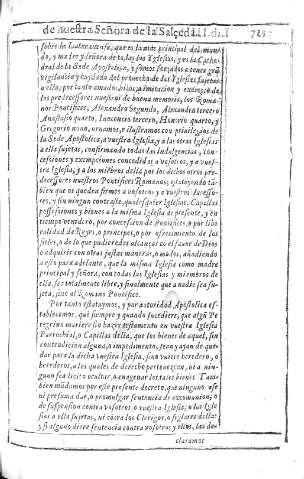 de nuestra Señora de la Salceda. Li. 
sobre la Lateranense, que es la mas principal del mun
do, y madre y señora de todas las Iglesias, y es la Cathe
dral de la Sede Apostolica, y somos forçados a tener gran
vigilancia y cuidado del prouecho de las Iglesias sujetas
a ella; por tanto a imitacion y exemplo de
los predecessores nuestros de buena memoria, los Roma
nos Pontifices, Alexandro segundo, Alexandro tercero
Anastasio quarto, Inocencio tercero, Honorio quarto, y
Gregorio nono, ornamos, e illustramos con priuilegios de
la Sede Apostolica, a vuestra Iglesia, y a las otras Iglesias
a ella sujetas, confirmando todas las Indulgencias, con
cessiones y excempciones concedidas a vosotros, y a vues
tra Iglesia, y a los miẽbros della por los dichos otros pre
decessores nuestros Pontifices Romanos; estatuyendo tã
bien que os queden firmes a vosotros y a vuestros successo
res, y sin ningun contraste, qualesquier Iglesias, Capillas
possessiones y bienes a la misma Iglesia de presente, y en
tiempo venidero, por concession de Pontifices, o por libe
ralidad de Reyes, o principes, o por ofrecimiento de los
fieles, o de lo que pudieredes alcançar cõ el fauor de Dios
o adquirir con otras justas maneras, o modos, añadiendo
a esto para adelante, que la misma Iglesia como madre
principal y señora, con todas las Iglesias y miembros de
ella, sea totalmente libre, y finalmente que a nadie sea su
jeta, sino al Romano Pontifice.
Por tanto estatuymos, y por autoridad Apostolica es
tablecemos, que siempre y quando sucediere, que algũ Pe
regrino muriere sin hazer testamento en vuestra Iglesia
Parrochial, o Capillas della, que los bienes de aquel, sin
contradicion alguna, o impedimento, sean y ayan de que
dar para la dicha vuestra Iglesia, sino viuiere heredero, o
herederos, a los quales de derecho pertenezcan, ni a nin
guno sea licito ocultar, o enagenar los tales bienes. Tam
bien mãdamos por este presente decreto, que ninguno ose
ni presuma dar, o promulgar sentencia de excomunion, o
de suspension contra vosotros, o vuestra Iglesia, o las Igle
sias a ella sujetas, ni cõtra los Clerigos, o seglares dellas;
y si alguno diere sentencia contra vosotros y ellos, las de-
claramos